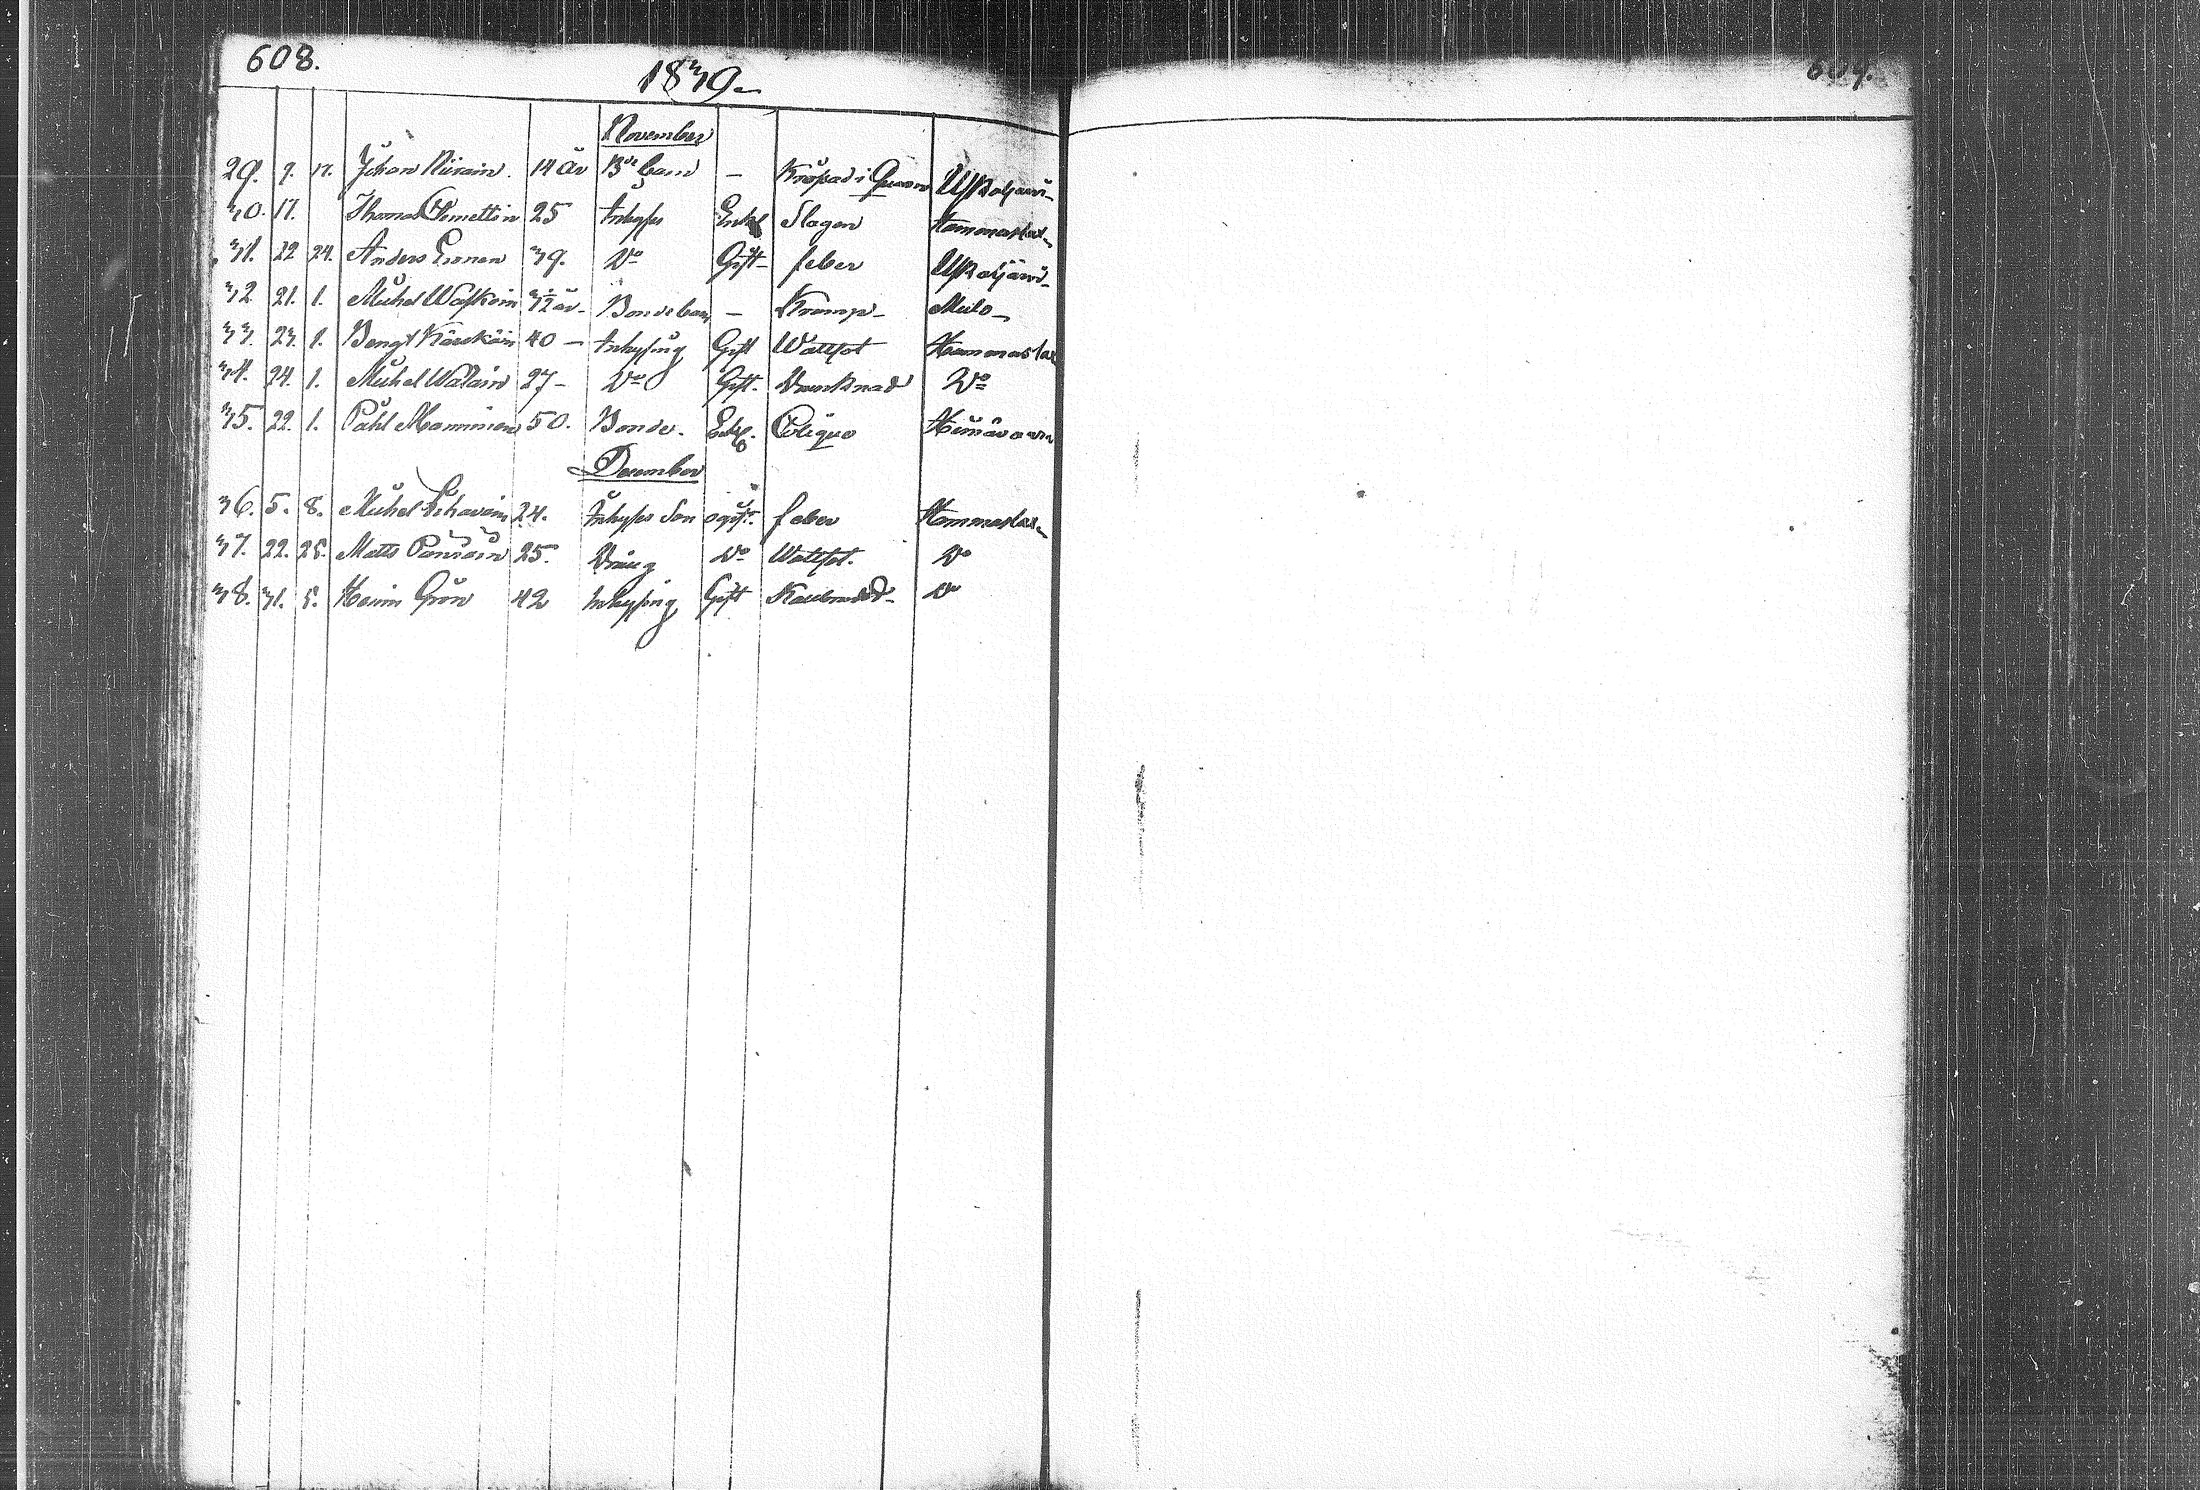 608.
609.
1839.
November
29. 9. 17. Johan Niirain. 14 år Bde barn — Krossad i Quarn Uskaljärvi
30. 17. Thomas Clemettin 25 Inhyses Enkl Slagen Hammaslax
31. 22 24. Anders Eronen 39. Do Gift feber Uskaljärvi
32. 21. 1. Michel Waskoin 3½ år Bonde barn — Kramp Mulo
33. 23. 1. Bengt Kärckäin 40 Inhysing Gift Wattsot Hammaslax
34. 24. 1. Michel Walain 27 Do Gift. Drunknad Do
35. 22. 1. Påhl Manninen 50. Bonde. Enkl. Colique
December
36. 5. 8. Michel 24. Inhyses Son ogift. feber Hammaslax
37. 22. 25. Matts 25. Dräng Do Wattsot. Do
38. 31. 5. Grön 42 Inhysing Gift Do